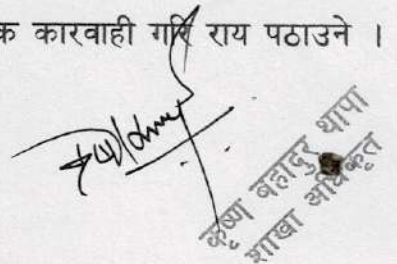 क कारवाही गरि राय पठाउने ।
कृष्ण बहादुर थापा
शाखा अधिकृत